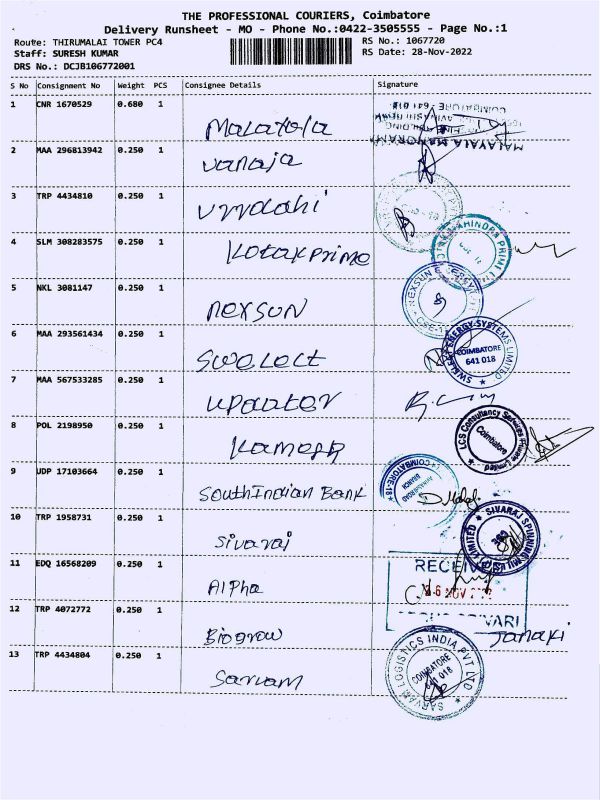 THE PROFESSIONAL COURIERS, Coimbatore
Delivery Runsheet - MO - Phone No.:0422-3505555 - Page No.:1
Route: THIRUMALAI TOWER PC4 RS No.: 1067720
Staff: SURESH KUMAR RS Date: 28-Nov-2022
DRS No.: DCJB106772001
S No Consignment No Weight PCS Consignee Details Signature
1 CNR 1670529 0.680 1
COIMBATORE - 641 018
MALAYALA MANORAMA
2 MAA 296813942 0.250 1
vanaja
3 TRP 4434810 0.250 1
4 SLM 308283575 0.250 1
Kotak Prime
MAHINDRA PRIME
5 NKL 3081147 0.250 1
NEXSUN
NEXSUN
6 MAA 293561434 0.250 1
Swelect
SWELECT ENERGY SYSTEMS LIMITED
COIMBATORE
641 018
7 MAA 567533285 0.250 1
updater
8 POL 2198950 0.250 1
LCS Consultancy Services Private Limited
Coimbatore
9 UDP 17103664 0.250 1
South Indian Bank
COIMBATORE-18
BRANCH
10 TRP 1958731 0.250 1
Sivaraj
SIVARAJ SPINNING MILLS LIMITED
11 EDQ 16568209 0.250 1
Alpha
RECEIVED
12 TRP 4072772 0.250 1
Biogrow
Janaki
13 TRP 4434804 0.250 1
Sarvam
SARVAM LOGISTICS INDIA PVT LTD
COIMBATORE
641 018